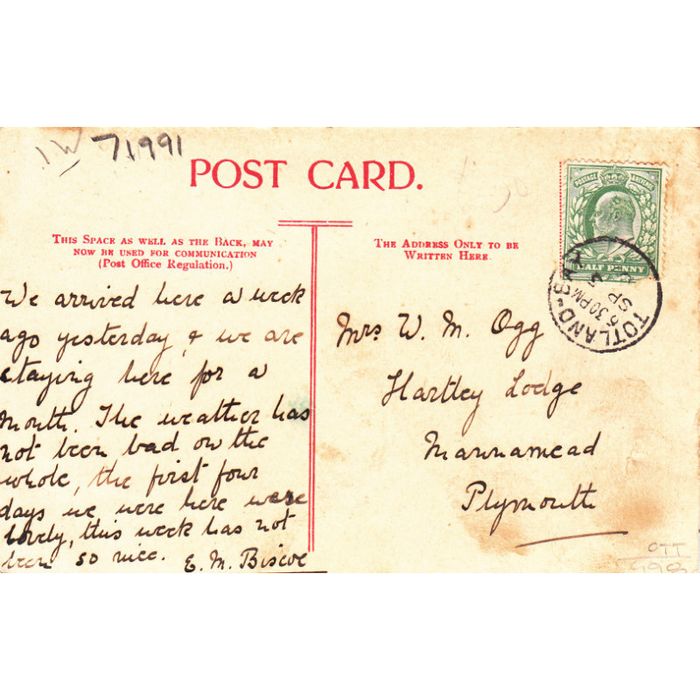 I W 71991
POST CARD.
THIS SPACE AS WELL AS THE BACK, MAY
NOW BE USED FOR COMMUNICATION
(Post Office Regulation.)
THE ADDRESS ONLY TO BE
WRITTEN HERE
POSTAGE REVENUE
HALF PENNY
TOTLAND-B
7.30PM
SP
We arrived here a week
ago yesterday, & we are
staying here for a
month. The weather has
not been bad on the
whole, the first four
days we were here were
lovely, this week has not
been so nice. E. M. Biscoe
Mrs W. M. Ogg
Hartley Lodge
Mannamead
Plymouth
OTT